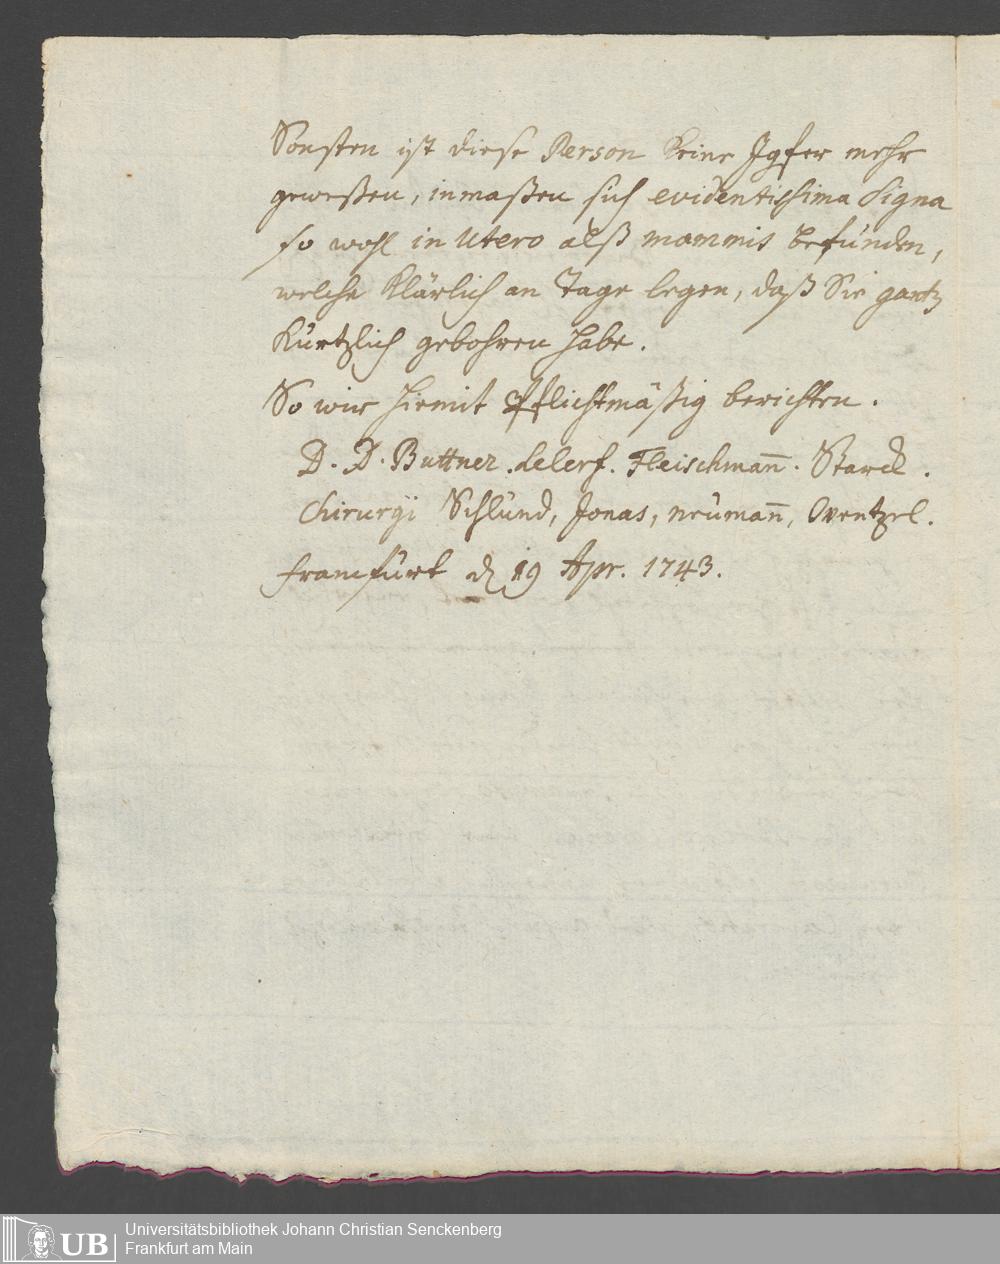 Sonsten ist diese Person keine Jgfer mehr
geweßen, inmaßen sich evidentissima Signa
so wohl in Utero alß mammis befunden,
welche klärlich an Tage legen, daß Sie gantz
kürtzlich gebohren habe.
So wir hiemit Pflichtmäßig berichten.
D. D. Buttner. Fleischmañ. Starck.
Chirurgii Schlund, Jonas, Neumañ, Wentzel.
Franckfurt d 19 Apr. 1743.
UB
Universitätsbibliothek Johann Christian Senckenberg
Frankfurt am Main